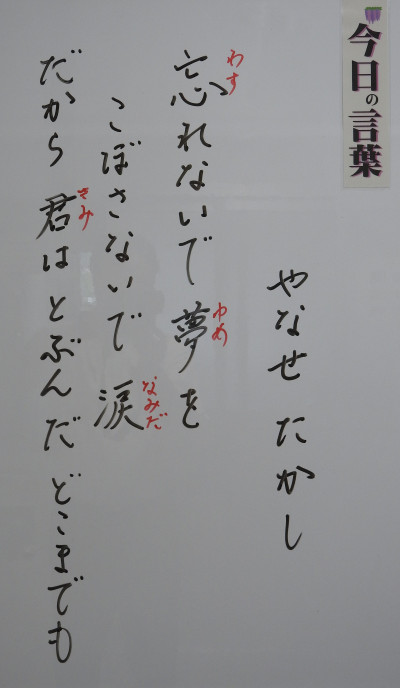 今日の言葉
やなせ たかし
忘れないで夢を
わす
ゆめ
こぼさないで 涙
なみだ
だから 君はとぶんだ どこまでも
きみ